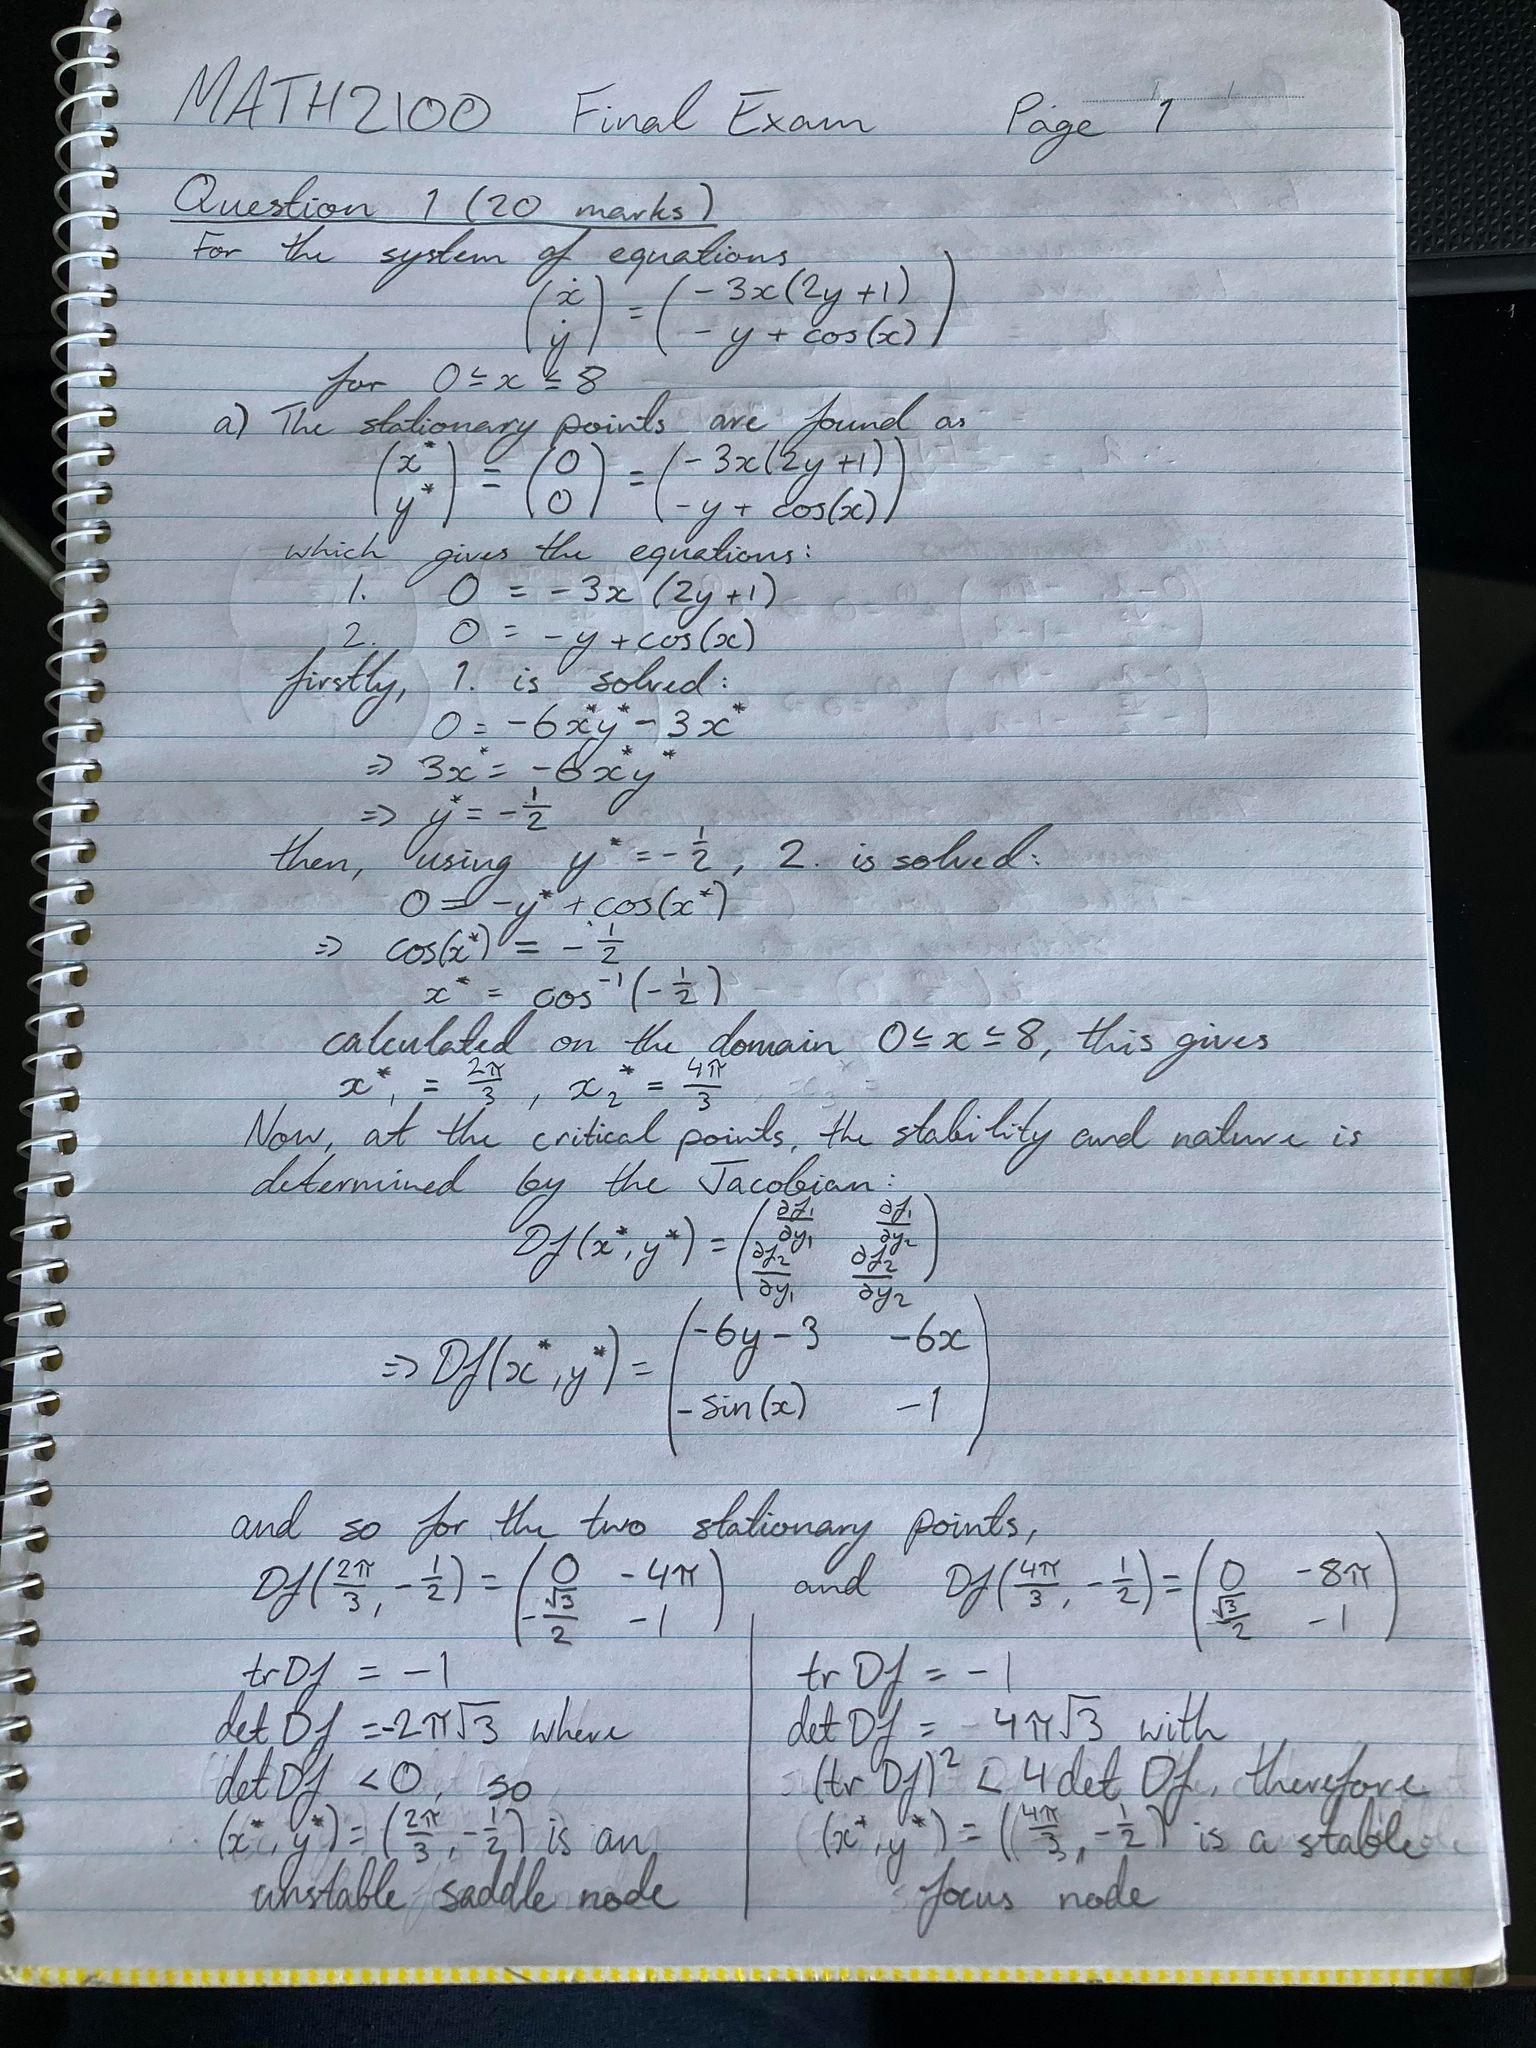 MATH2100 Final Exam Page 1
Question 1 (20 marks)
For the system of equations
(ẋ ẏ) = (-3x(2y+1) -y + cos(x))
for 0 ≤ x ≤ 8
a) The stationary points are found as
(x* y*) = (0 0) = (-3x(2y+1) -y + cos(x))
which gives the equations:
1. 0 = -3x (2y+1)
2. 0 = -y + cos(x)
firstly, 1. is solved:
0 = -6x*y* - 3x*
⇒ 3x* = -6x*y*
⇒ y* = -1/2
then, using y* = -1/2, 2. is solved:
0 = -y* + cos(x*)
⇒ cos(x*) = -1/2
x* = cos⁻¹(-1/2)
calculated on the domain 0 ≤ x ≤ 8, this gives
x*₁ = 2π/3, x₂* = 4π/3
Now, at the critical points, the stability and nature is
determined by the Jacobian:
Df(x*, y*) = (∂f₁/∂y₁ ∂f₁/∂y₂ ∂f₂/∂y₁ ∂f₂/∂y₂)
⇒ Df(x*, y*) = (-6y-3 -6x -sin(x) -1)
and so for the two stationary points,
Df(2π/3, -1/2) = (0 -4π -√3/2 -1) and Df(4π/3, -1/2) = (0 -8π √3/2 -1)
tr Df = -1
det Df = -2π√3 where
det Df < 0, so
(x*, y*) = (2π/3, -1/2) is an
unstable saddle node
tr Df = -1
det Df = 4π√3 with
(tr Df)² < 4 det Df, therefore
(x*, y*) = (4π/3, -1/2) is a stable
focus node